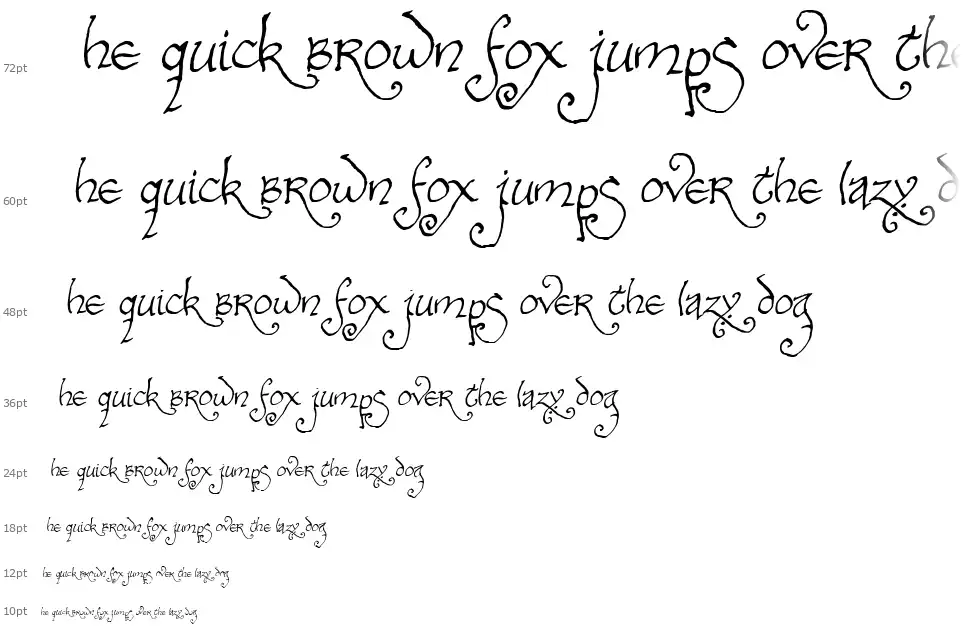 72pt he quick brown fox jumps over the
60pt he quick brown fox jumps over the lazy d
48pt he quick brown fox jumps over the lazy dog
36pt he quick brown fox jumps over the lazy dog
24pt he quick brown fox jumps over the lazy dog
18pt he quick brown fox jumps over the lazy dog
12pt he quick brown fox jumps over the lazy dog
10pt he quick brown fox jumps over the lazy dog